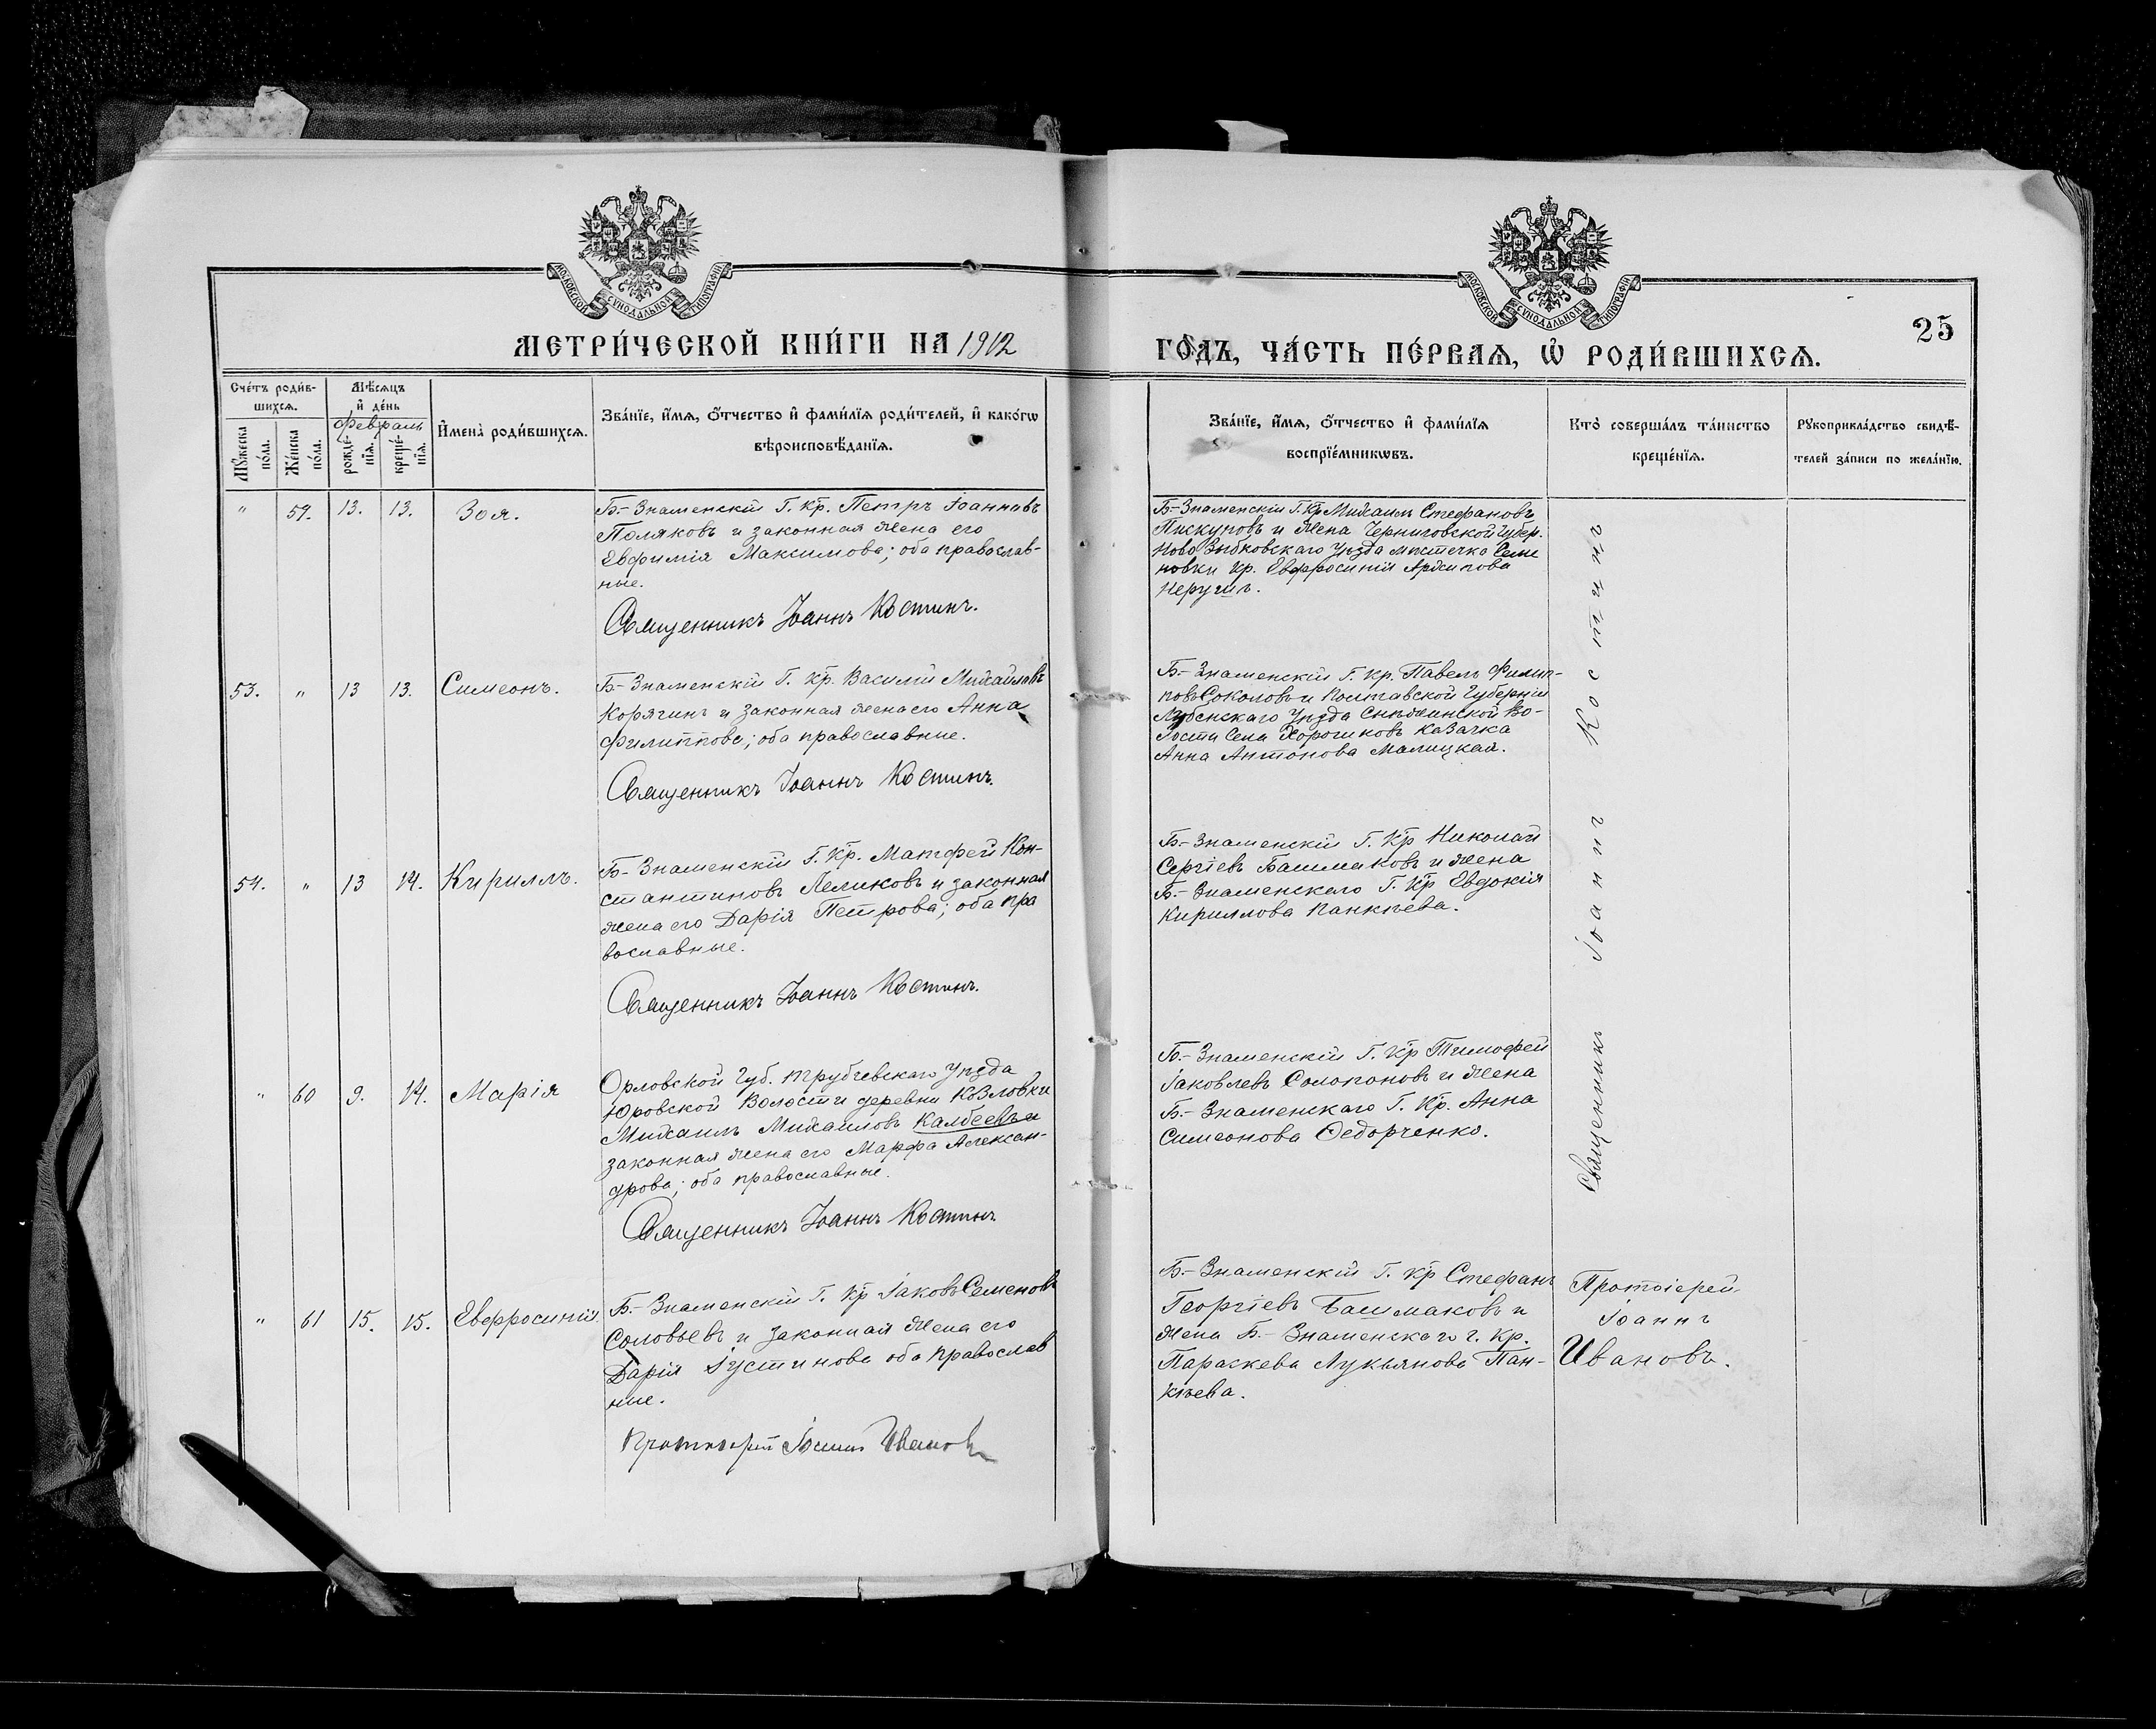 МОСКОВСКОЙ СѴНОДАЛЬНОЙ ТИПОГРАФІИ
МОСКОВСКОЙ СѴНОДАЛЬНОЙ ТИПОГРАФІИ
МЕТРИ́ЧЕСКОЙ КНИ́ГИ НА 1912
ГО́ДЪ, ЧА́СТЬ ПЕ́РВАѦ, Ѽ РОДИ́ВШИХСѦ.
25
Сче́тъ роди́в-
шихсѧ.
Мѣ́сѧцъ
и҆ де́нь
Февраль
Мꙋ́жеска
по́ла.
Же́нска
по́ла.
рожде́-
нїѧ.
креще́-
нїѧ.
И҆мена̀ роди́вшихсѧ.
Зва́нїе, и҆́мѧ, ѻ҆́тчество и҆ фами́лїѧ роди́телей, и҆ како́гѡ
вѣроисповѣ́данїѧ.
Зва́нїе, и҆́мѧ, ѻ҆́тчество и҆ фами́лїѧ
воспрїе́мникѡвъ.
Кто̀ соверша́лъ та́инство
креще́нїѧ.
Рꙋкоприкла́дство свидѣ́-
телей за́писи по жела́нїю.
" 59. 13. 13. Зоя.
Б.-Знаменскій Г. Кр. Петръ Іоанновъ
Поляковъ и законная жена его
Евфимія Максимова; оба православ-
ные.
Священникъ Іоаннъ Костинъ.
Б.-Знаменскій Г. Кр Михаилъ Стефановъ
Пискуновъ и жена Черниговской Губер.
Ново Зыбковскаго Уѣзда мѣстечко Семе
новки Кр. Евфросинія Архипова
53. " 13 13. Симеонъ.
Б-Знаменскій Г. Кр. Василій Михайловъ
Корягинъ и законная жена его Анна
Филиппова; оба православные.
Священникъ Іоаннъ Костинъ.
Б.-Знаменскій Г. Кр. Павелъ Филип-
повъ Соколовъ и Полтавской Губерніи
Лубенскаго Уѣзда Снѣтинской Во-
лости Села Хорошковъ Казачка
Анна Антонова Малицкая.
54. " 13 14. Кириллъ.
Б-Знаменскій Г. Кр. Матфей Кон-
стантиновъ Лемиковъ и законная
жена его Дарія Петрова; оба пра
вославные.
Священникъ Іоаннъ Костинъ.
Б-Знаменскій Г. Кр Николай
Сергіевъ Башмаковъ и жена
Б-Знаменскаго Г. Кр Евдокія
Кириллова Панкѣева.
" 60 9. 14. Марія
Орловской Губ. Трубчевскаго Уѣзда
Юровской Волости деревни Козловки
Михаилъ Михаиловъ Калбеевъ и
законная жена его Марфа Алексан-
дрова; оба православные.
Священникъ Іоаннъ Костинъ
Б.-Знаменскій Г. Кр Тимофей
Іаковлевъ Солопоновъ и жена
Б.-Знаменскаго Г. Кр. Анна
Симеонова Ѳедорченко.
Священникъ Іоаннъ Костинъ
" 61 15. 15. Евфросинія
Б.-Знаменскій Г. Кр Іаковъ Семеновъ
Соловьевъ и законная жена его
Дарія Іустинова оба православ
ные.
Протоіерей Іоаннъ Ивановъ
Б.-Знаменскій Г. Кр Стефанъ
Георгіевъ Башмаковъ и
жена Б-Знаменскаго г. Кр.
Параскева Лукьянова Пан-
кѣева.
Протоіерей
Іоаннъ
Ивановъ.